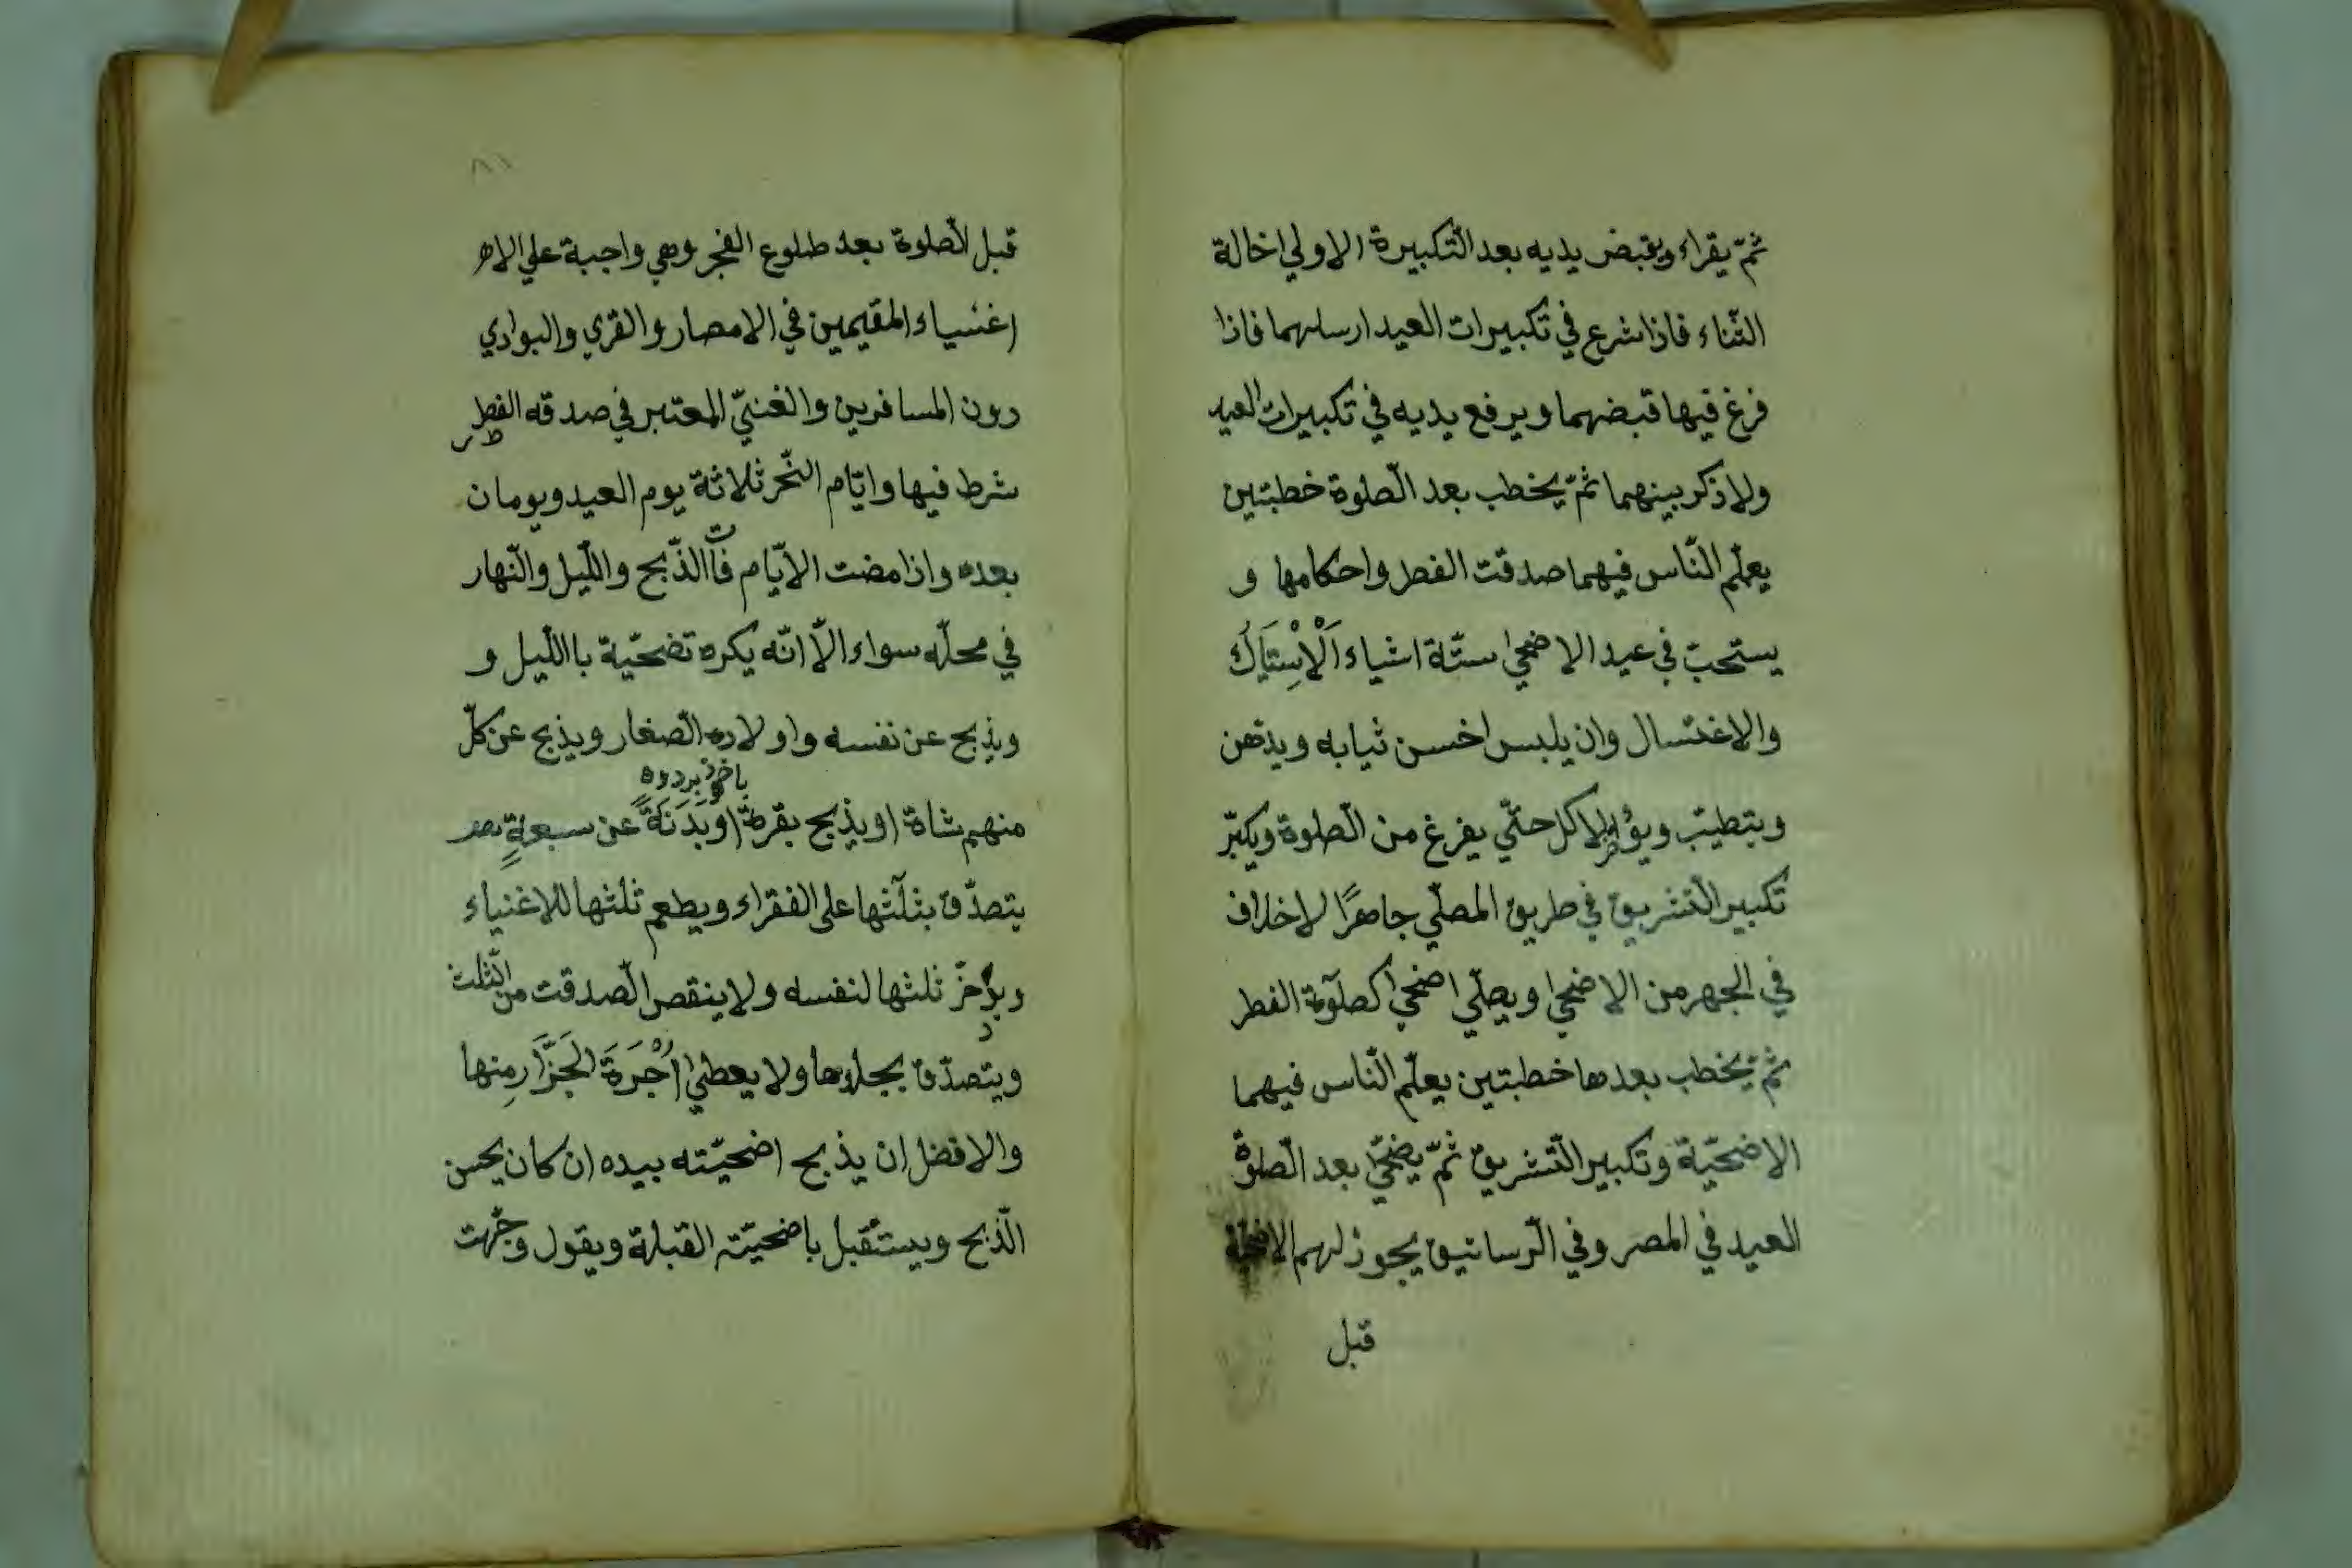 ثمّ يقراء ويقبض يديه بعد التّكبيرة الاولي اخالة
الثّناء فاذا شرع في تكبيرات العيد ارسلهما فاذا
فرغ فيها قبضهما ويرفع يديه في تكبيرات العيد
ولا ذكر بينهما ثمّ يخطب بعد الصّلوة خطبتين
يعلّم النّاس فيهما صدقت الفطر واحكامها و
يستحبّ في عيد الاضحٰي ستّة اشياء اَلْاِسْتِيَاكُ
والاغتسال وان يلبس اخسن ثيابه ويدّهن
ويتطيّب الاكل حتّي يفرغ من الصّلوة ويكبّر
تكبير التّشريق في طريق المصلّي جاهرًا لاخلاف
في الجهر من الاضحٰي ويصلّي اضحٰي كصلٓوة الفطر
ثمّ يخطب بعدها خطبتين يعلّم النّاس فيهما
الاضحيّة وتكبير التّشريق ثمّ يضحّي بعد الصّلوة
العيد في المصر وفي الرّساتيق يجوز لهم
قبل
٨١
قبل الصّلوة بعد طلوع الفجر وهي واجبة علي الا
اغنياء المقيمين في الامصار والقري والبوادي
دون المسافرين والغنيّ المعتبر في صدقه الفطر
شرط فيها وايّام النّحر ثلاثة يوم العيد ويومان
بعده واذا مضت الايّام فات الذّبح واللّيل والنّهار
في محلّه سواء الّا انّه يكره تضحيّة باللّيل و
ويذبح عن نفسه واولاده الصّغار ويذبح عن كلّ
منهم شاة او يذبح بقرة او بَدَنَةً عن سبعةٍ
يتصدّق بثلثها على الفقراء ويطعم ثلثها للاغنياء
ويدّخّر ثلثها لنفسه ولا ينقص الصّدقت من الثّلث
ويتصدّق بجلدها ولا يعطي اُجْرَةَ الجَزَّارِ مِنها
والافضل ان يذبح اضحيّته بيده ان كان يحسن
الذّبح ويستقبل باضحيّته القبلة ويقول وجّهت